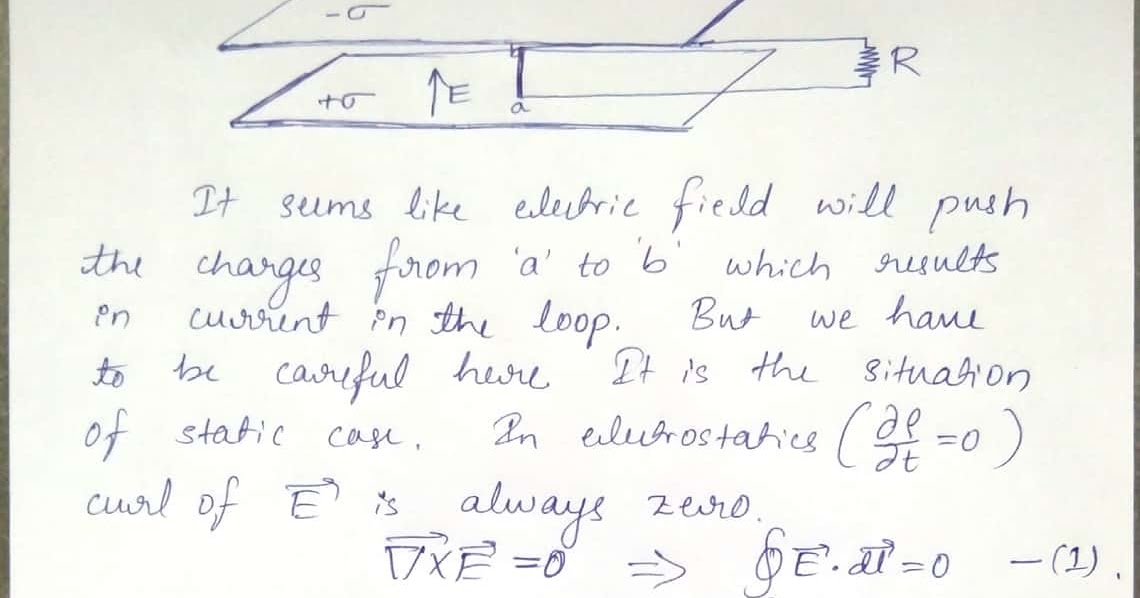 -σ
R
+σ
↑E
a
It seems like electric field will push
the charges from 'a' to 'b' which results
in current in the loop. But we have
to be careful here It is the situation
of static case. In electrostatics (∂ρ/∂t =0)
curl of E⃗ is always zero.
∇⃗×E⃗ =0 ⇒ ∮E⃗·dl⃗ =0 —(1).